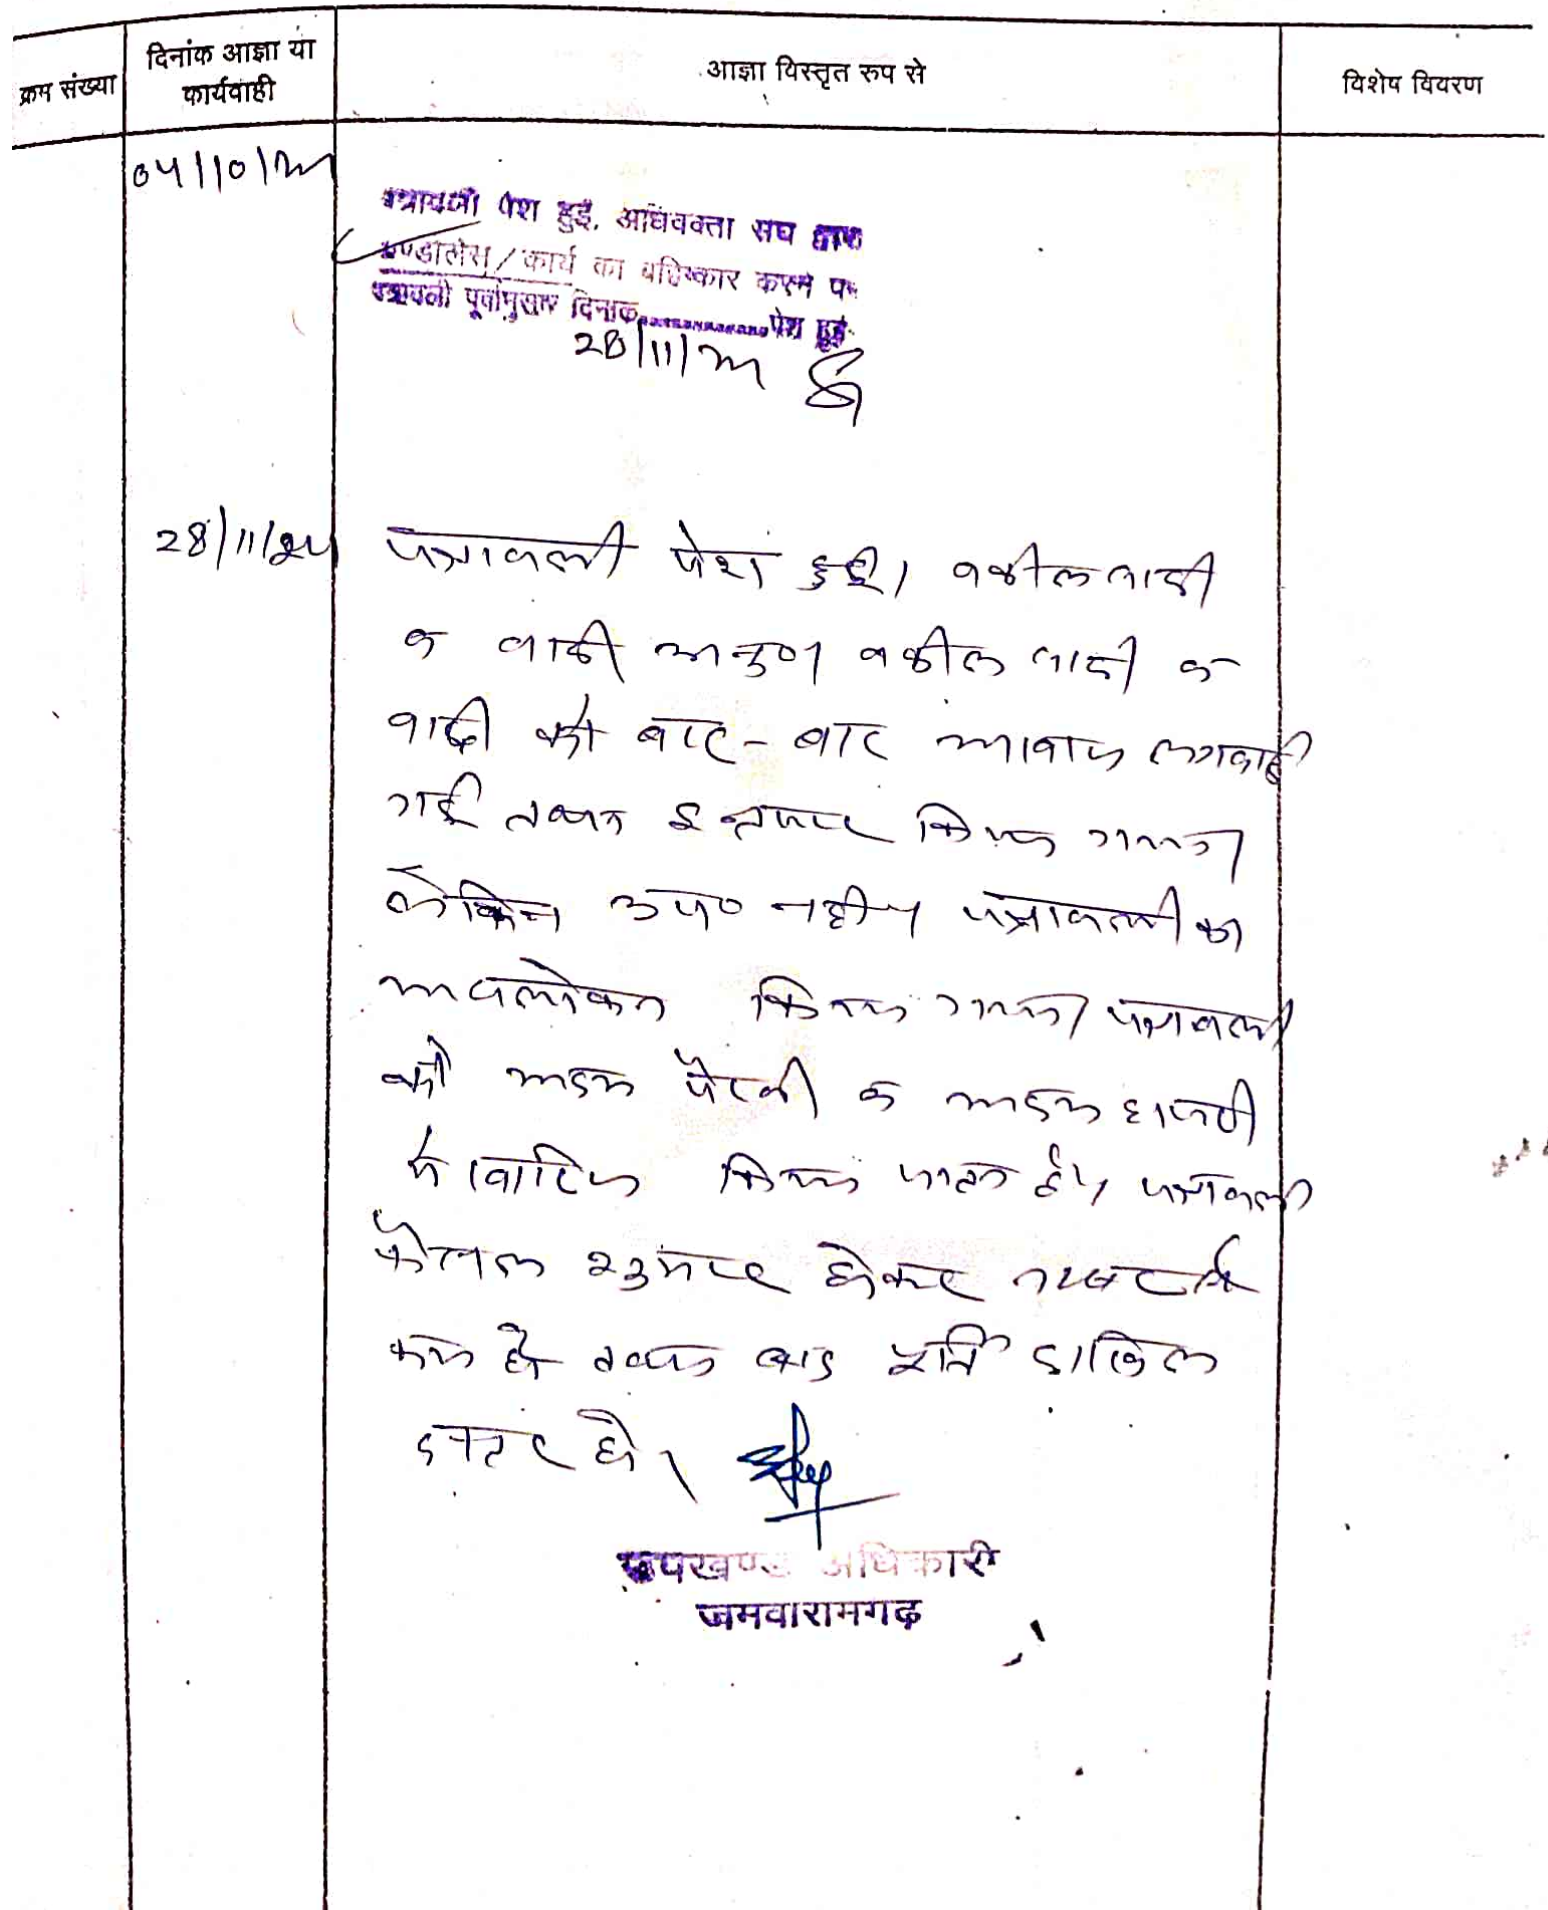 क्रम संख्या
दिनांक आज्ञा या
कार्यवाही
आज्ञा विस्तृत रुप से
विशेष विवरण
04/10/24
पत्रावली पेश हुई. अधिवक्ता संघ द्वारा
कण्डोलेंस/कार्य का बहिष्कार करने पर
पत्रावली पूर्वानुसार दिनांक..............पेश हुई.
28/11/24
28/11/24
पत्रावली पेश हुई। वकील वादी
व वादी अनु०। वकील वादी व
वादी को बार-बार आवाज लगवाई
गई तथा इन्तजार किया गया।
लेकिन उप० नहीं। पत्रावली का
अवलोकन किया गया। पत्रावली
को अदम पैरवी व अदम हाजरी
में खारिज किया जाता है। पत्रावली
फैसल शुमार होकर नम्बर से
कम हो तथा बाद पूर्ति दाखिल
दफ्तर हो।
उपखण्ड अधिकारी
जमवारामगढ़